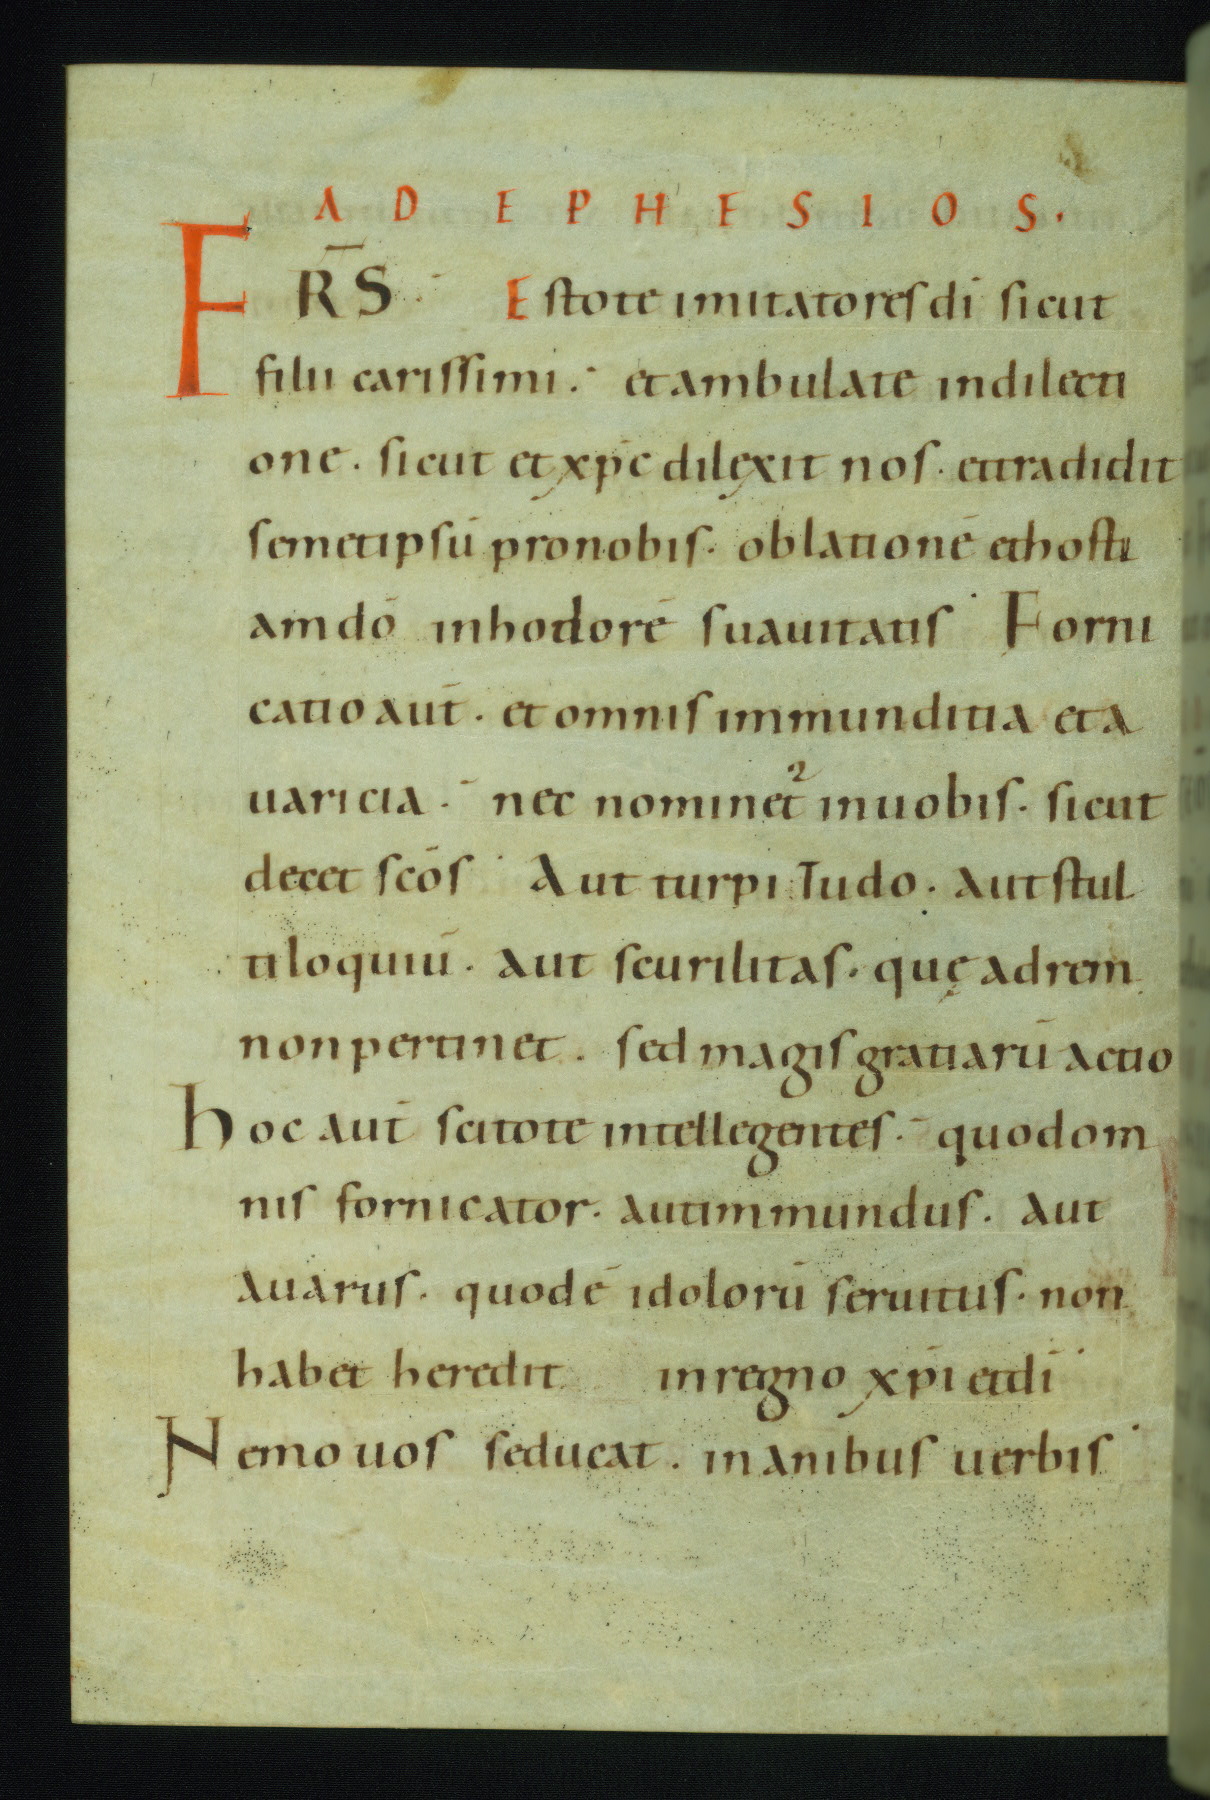 AD EPHESIOS.
FRS̅. Estote imitatores dī sicut
filii carissimi. et ambulate in dilecti
one. sicut et xp̄c dilexit nos. et tradidit
semetipsū pro nobis. oblationē et hosti
am dō in hodorē suauitatis. Forni
catio aut̄. et omnis immunditia et a
uaricia. nec nominet᷑ in uobis. sicut
decet scōs. Aut turpitudo. aut stul
tiloquiū. aut scurilitas. quę ad rem
non pertinet. sed magis gratiarū actio
hoc aut̄ scitote intellegentes. quod om
nis fornicator. aut immundus. aut
auarus. quod ē idolorū seruitus. non
habet heredit in regno xp̄i et dī.
Nemo uos seducat. inanibus uerbis.